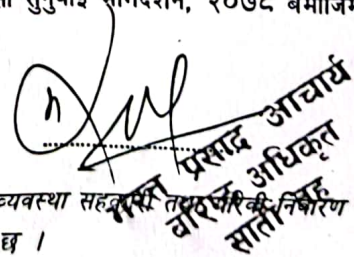 सुनुवाई मार्गदर्शन, २०७८ बमोजिम
प्रसाद आचार्य
वरिष्ठ अधिकृत
सातौं तह
व्यवस्था सहजकारी तथा निर्धारण
छ ।